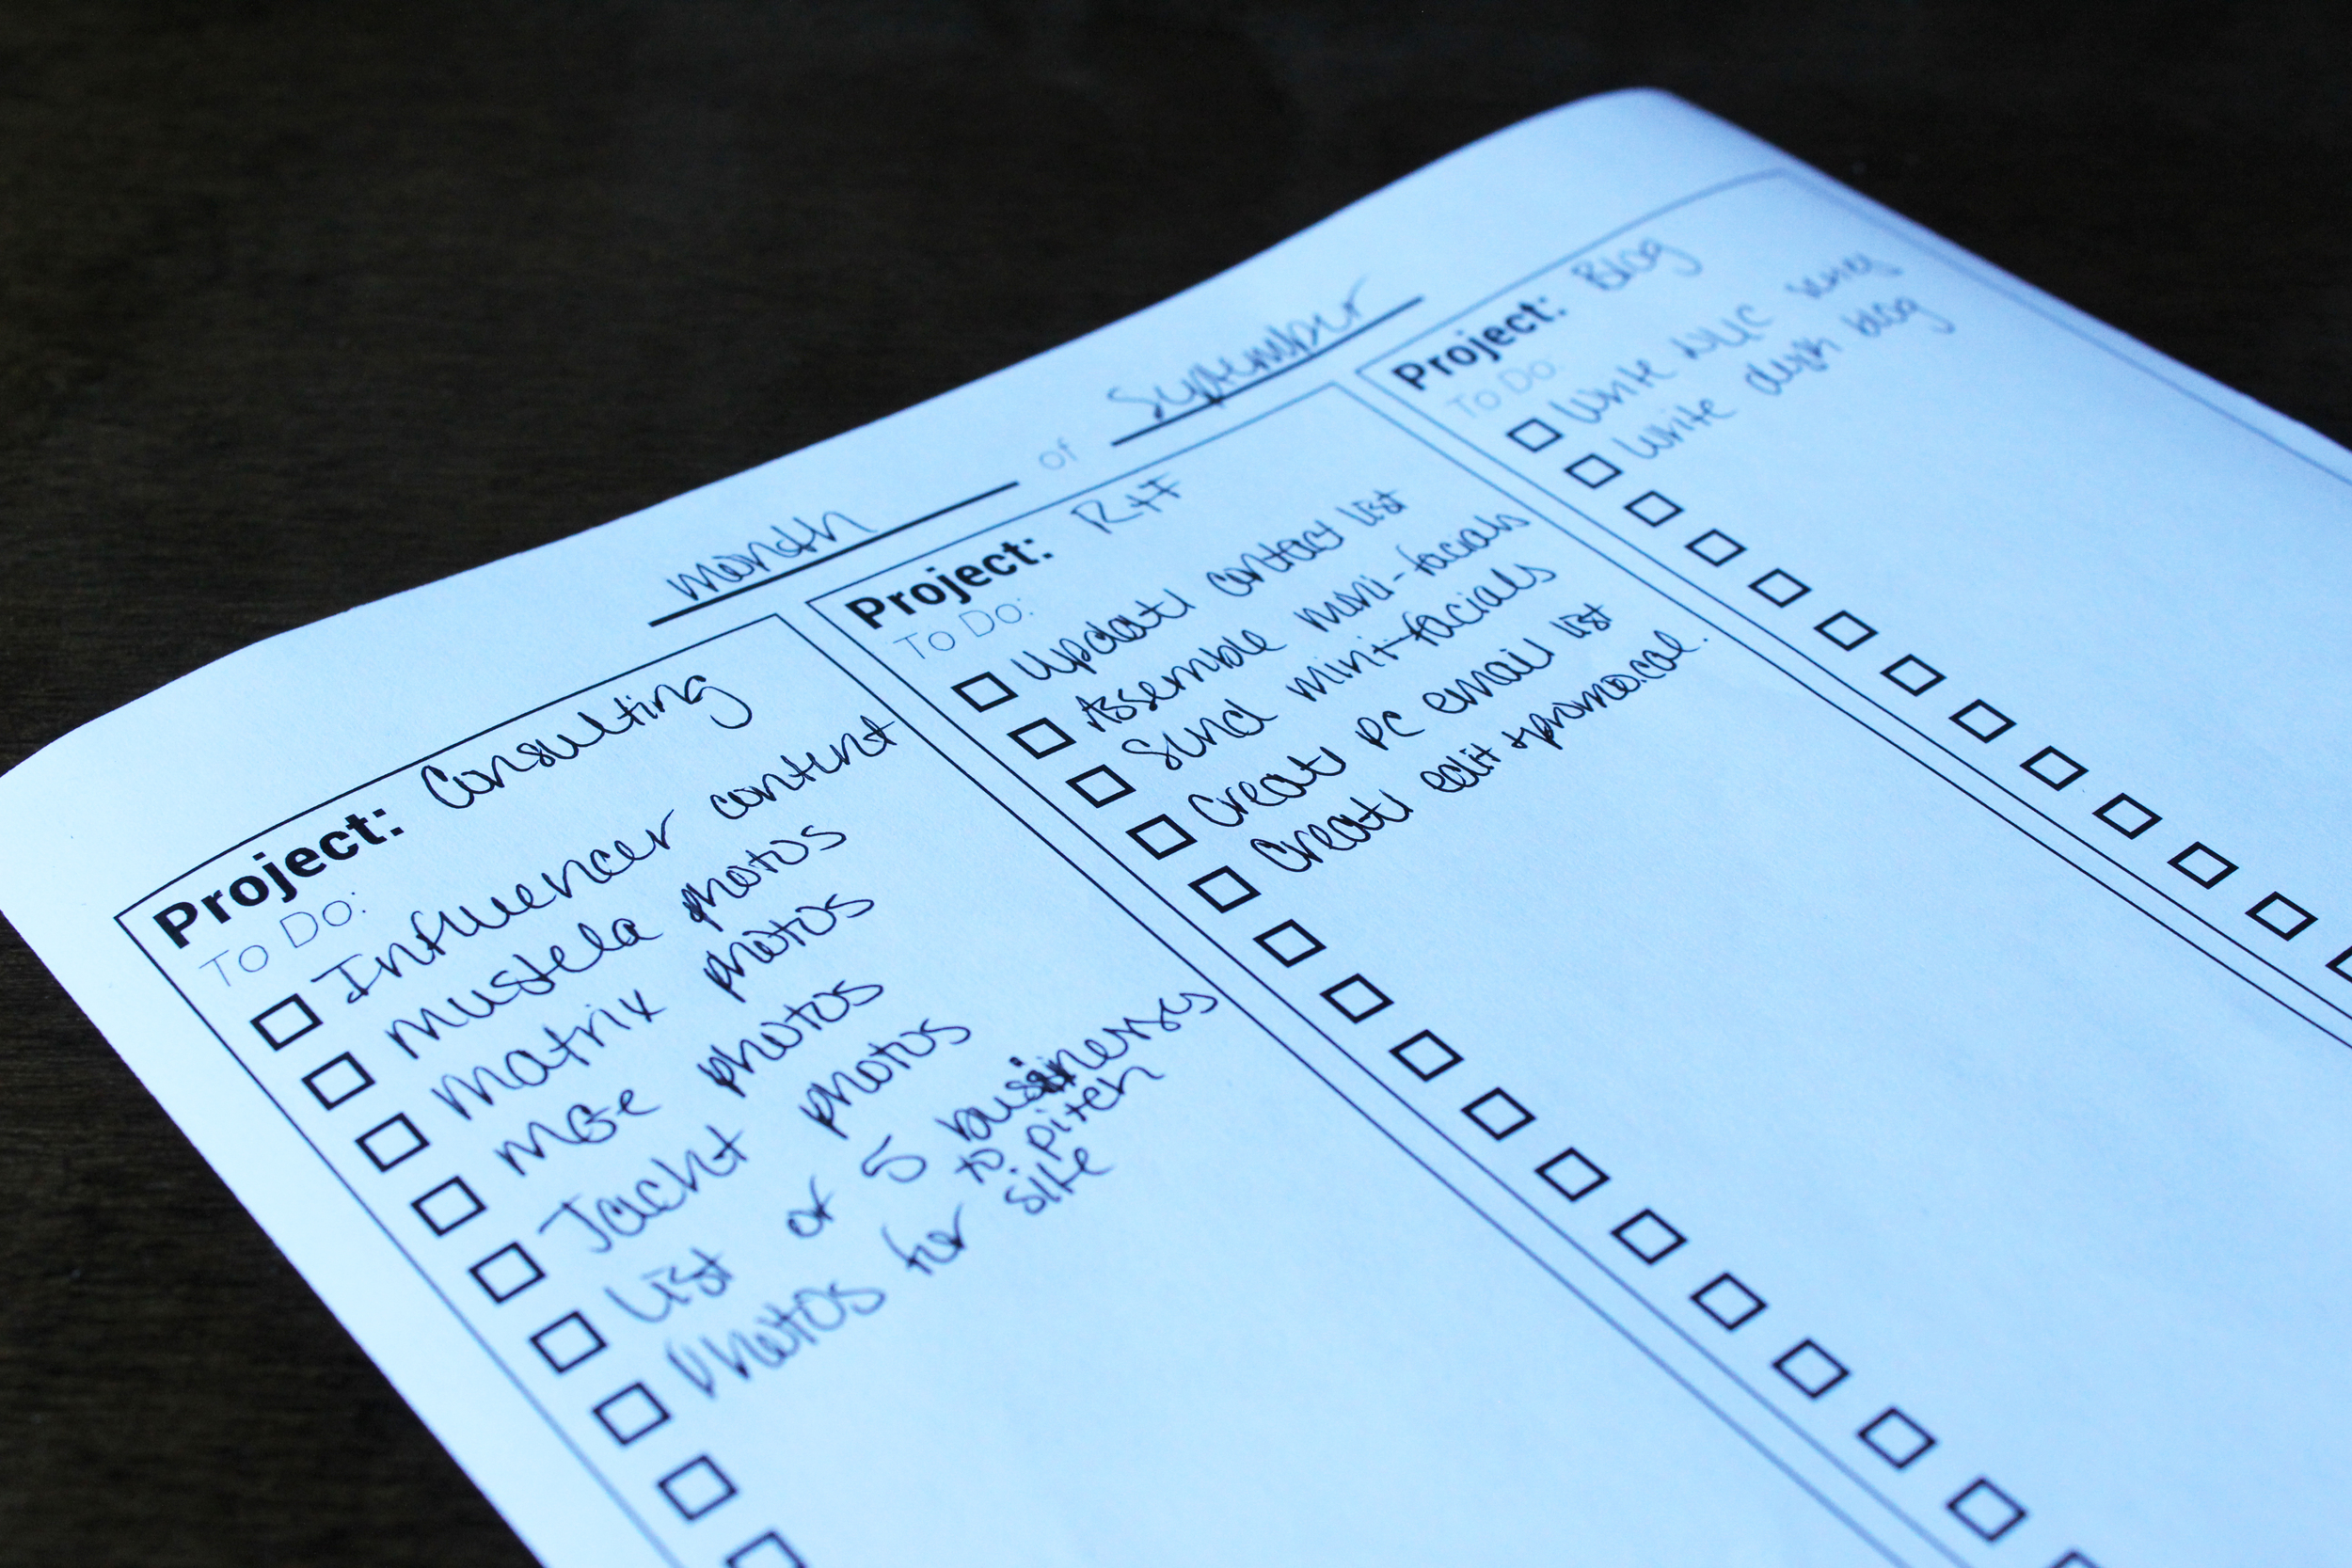 month of September
Project: Consulting
To Do:
Influencer content
Mustela photos
Matrix photos
photos
Jacht photos
List of 5 businesses
to pitch
Photos for site
Project: R+F
To Do:
Update contact list
Assemble mini-facials
Send mini-facials
Create PC email list
Create edit + promo.cal.
Project: Blog
To Do:
Write series
Write blog